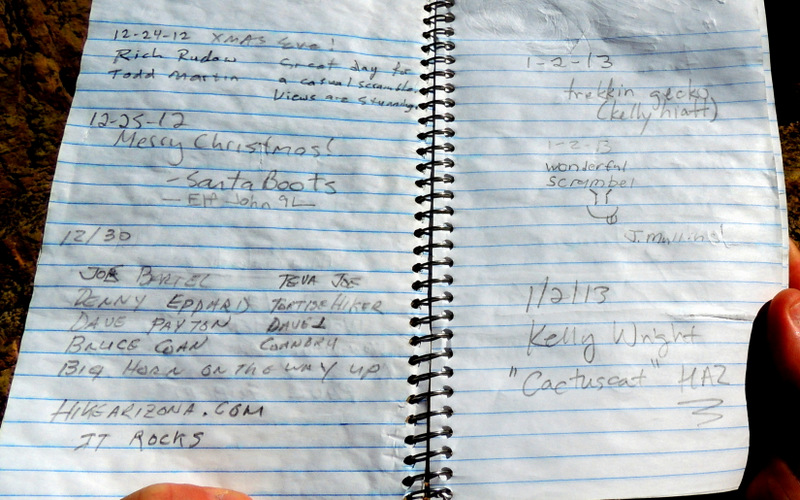 12-24-12 XMAS Eve!
Rich Rudow Great day for
Todd Martin a casual scramble.
Views are stunning.
12-25-12
Merry Christmas!
- Santa Boots
- Elf John 9L
12/30
JOE BARTEL TEVA JOE
DENNY EPPARD TORTISEHIKER
DAVE PAYTON DAVE1
BRUCE COAN COANBRU
BIG HORN ON THE WAY UP
HIKEARIZONA.COM
IT ROCKS
1-2-13
trekkin gecko
(kelly hiatt)
1-2-13
wonderful
scrambel
J. Mullins
1/2/13
Kelly Wright
"Cactuscat" HAZ